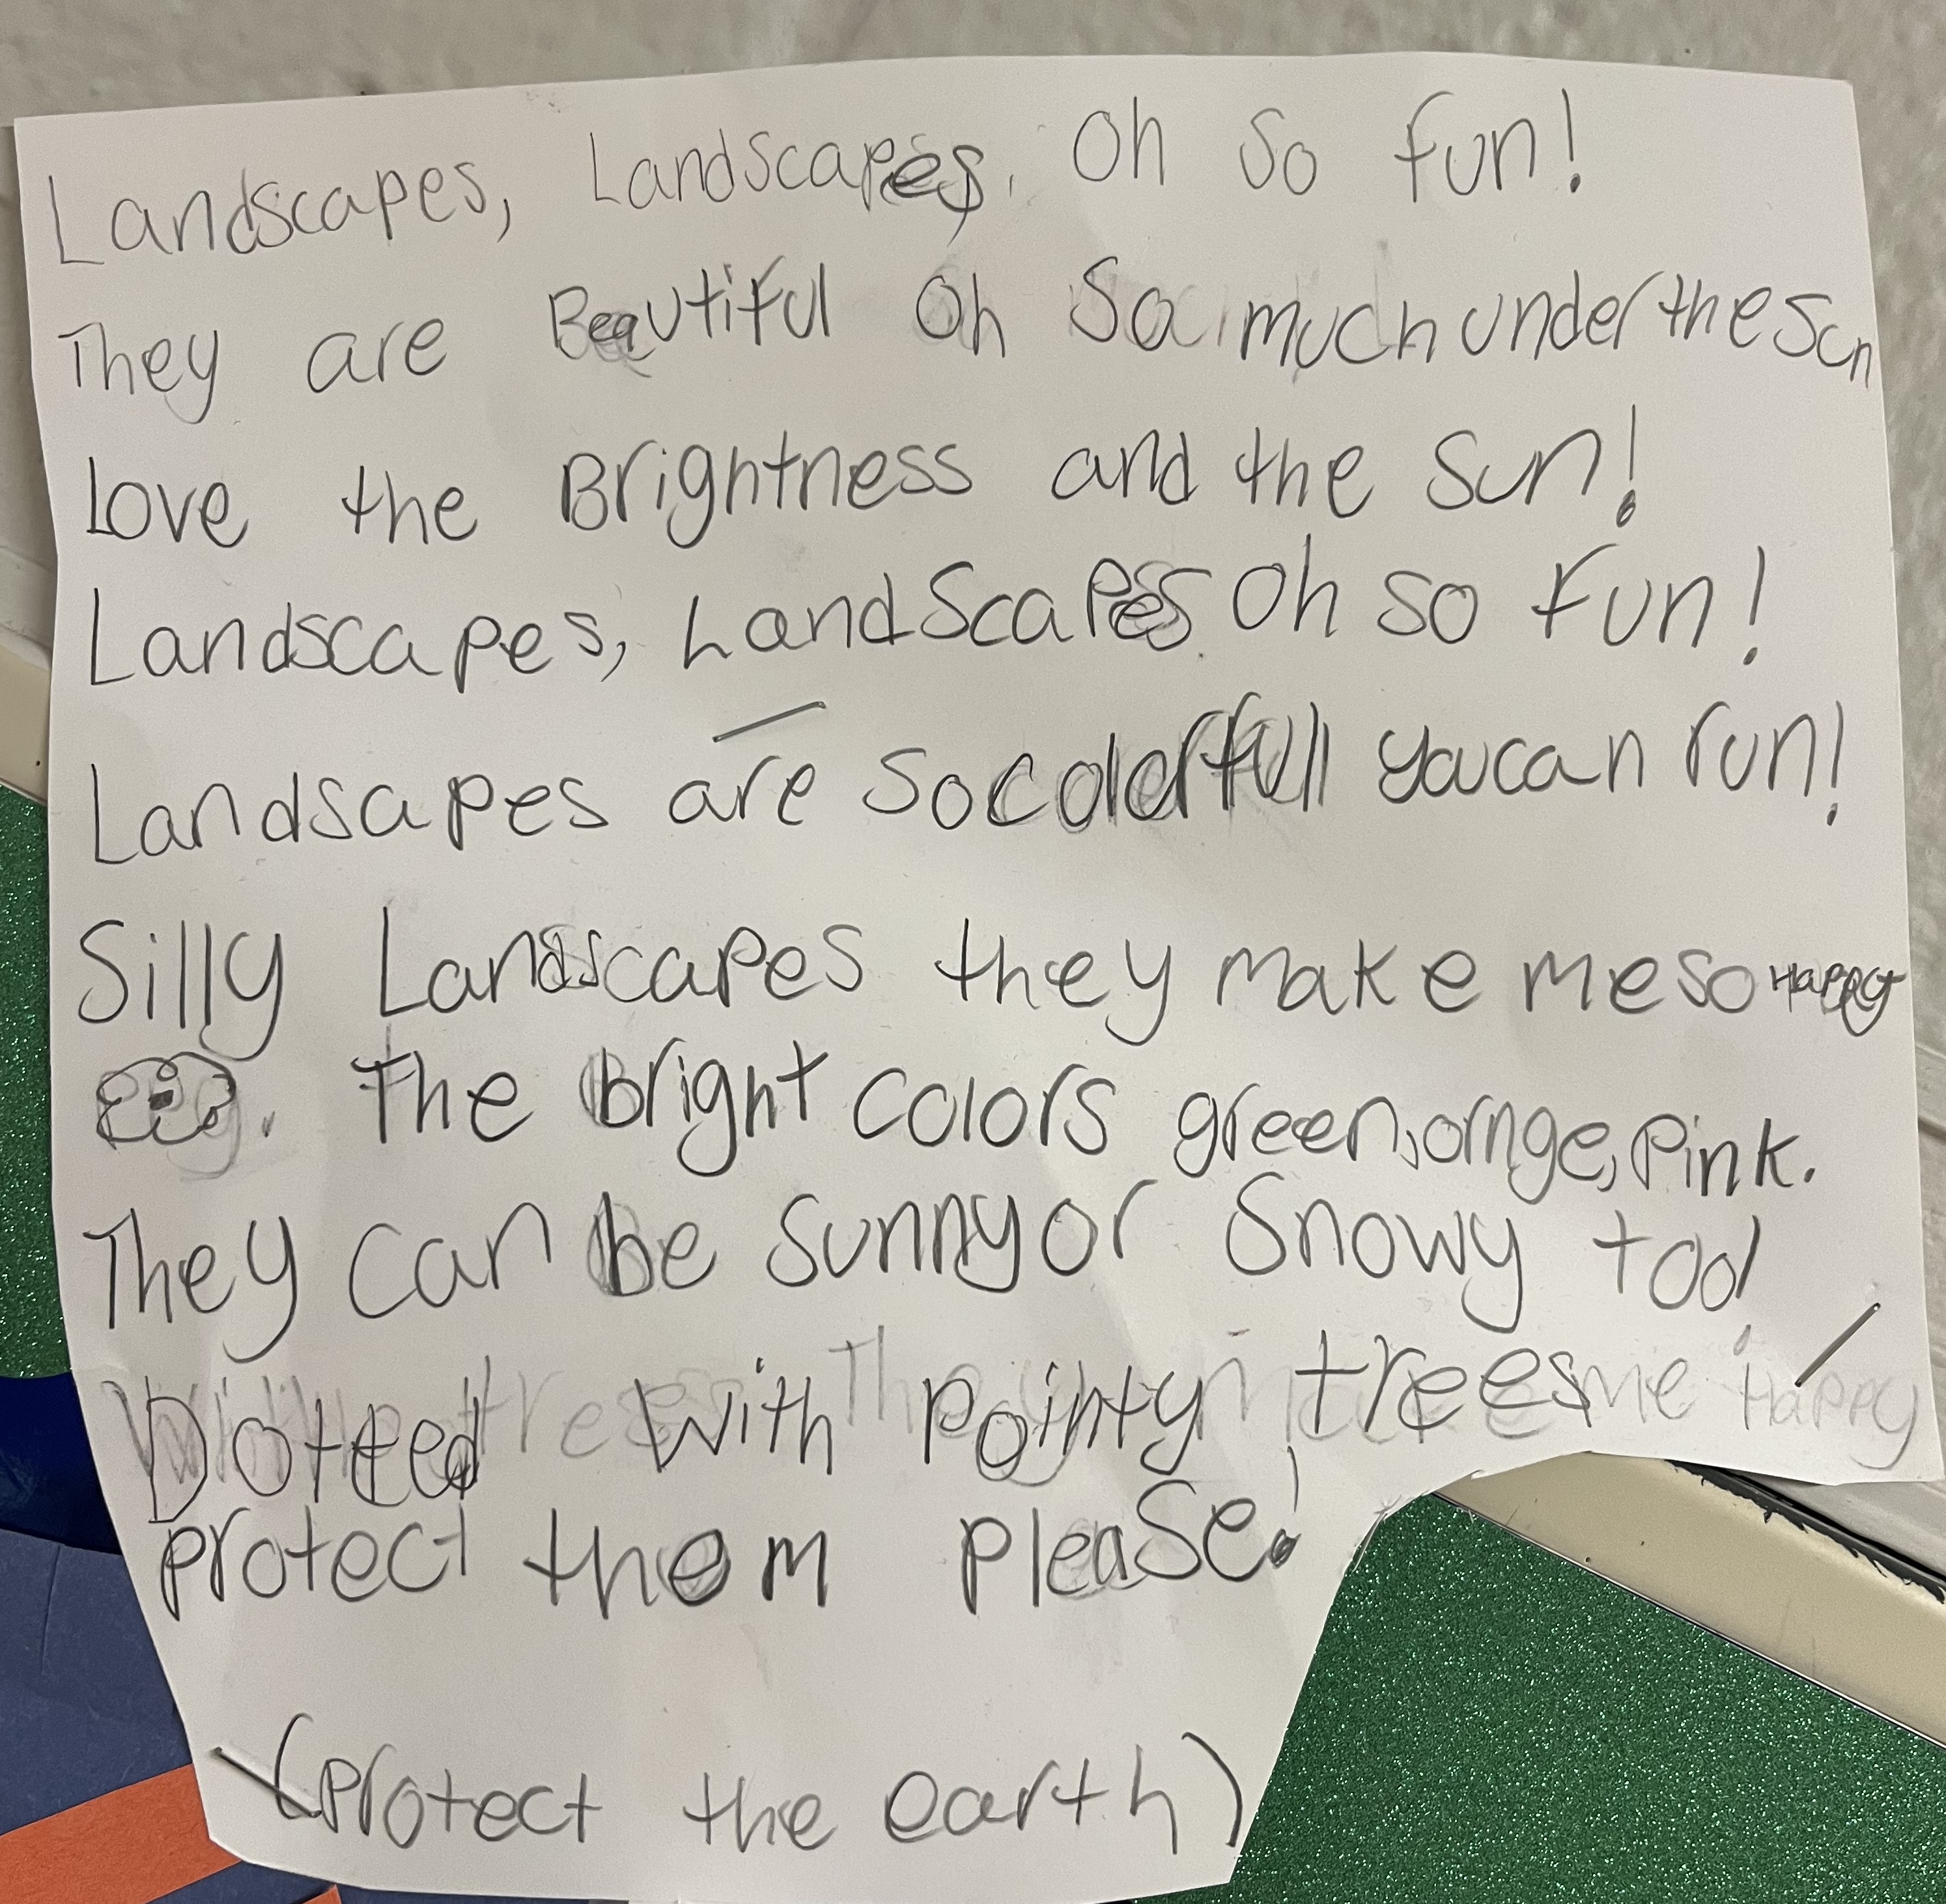 Landscapes, Landscapes, Oh So fun!
They are Beautiful Oh So much under the Sun
Love the Brightness and the Sun!
Landscapes, LandScapes Oh so fun!
Landsapes are so colerfull you can run!
Silly Landscapes they make me so Happy
. The bright colors green, ornge, Pink.
They can be sunny or Snowy too!
Dotted with pointy trees
protect them please!
(protect the earth)